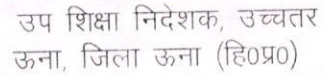 उप शिक्षा निदेशक, उच्चतर
ऊना, जिला ऊना (हि०प्र०)